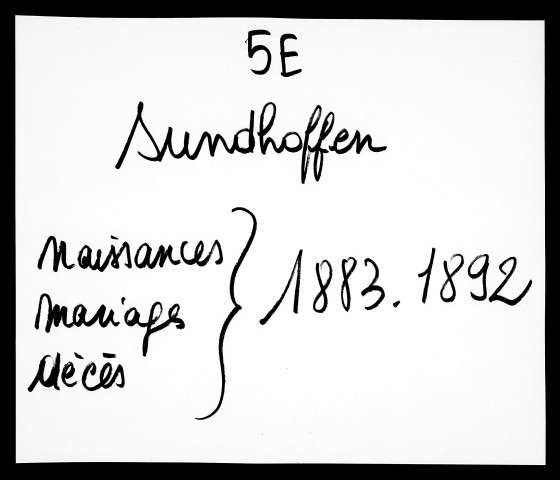 5E
Sundhoffen
Naissances
Mariages
Décès
} 1883.1892